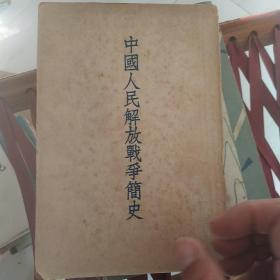 中國人民解放戰爭簡史